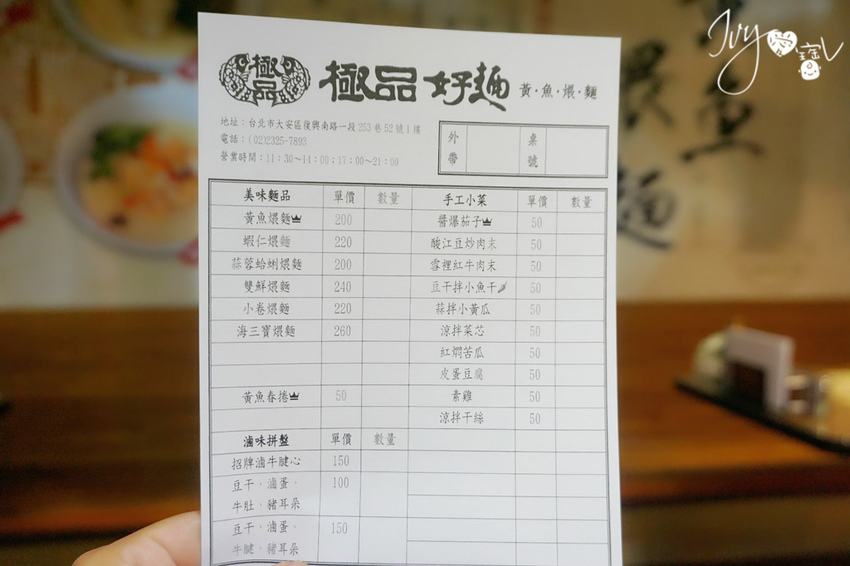 Ivy愛寶L
極品
極品 好麵 黃·魚·煨·麵
地址：台北市大安區復興南路一段253巷52號1樓
電話：(02)2325-7893
營業時間：11：30~14：00；17：00~21：00
外帶
桌號
美味麵品 單價 數量
黃魚煨麵 200
蝦仁煨麵 220
蒜蓉蛤蜊煨麵 200
雙鮮煨麵 240
小卷煨麵 220
海三寶煨麵 260
黃魚春捲 50
滷味拼盤 單價 數量
招牌滷牛腱心 150
豆干、滷蛋、 100
牛肚、豬耳朵
豆干、滷蛋、 150
牛腱、豬耳朵
手工小菜 單價 數量
醬爆茄子 50
酸江豆炒肉末 50
雪裡紅牛肉末 50
豆干拌小魚干 50
蒜拌小黃瓜 50
涼拌菜芯 50
紅燜苦瓜 50
皮蛋豆腐 50
素雞 50
涼拌干絲 50
魚
煨
麵